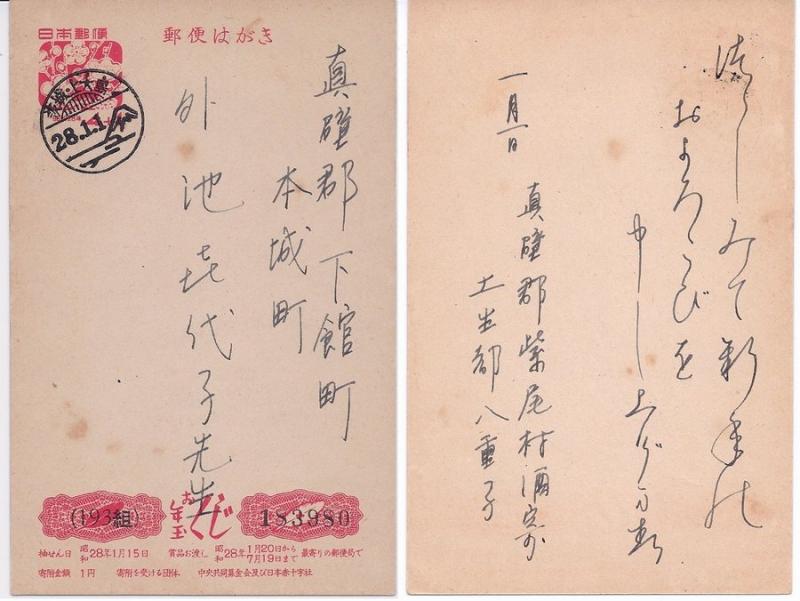 日本郵便
郵便はがき
28.1.1
真壁郡下館町
本城町
外池喜代子先生
(193組)
お年玉くじ
183980
抽せん日 昭和28年1月15日 賞品お渡し 昭和28年1月20日から7月19日まで 最寄りの郵便局で
寄附金額 1円 寄附を受ける団体 中央共同募金会及び日本赤十字社
つゝしみて新年の
およろこびを
申し上げます
一月一日
真壁郡紫尾村酒寄
土生都八重子